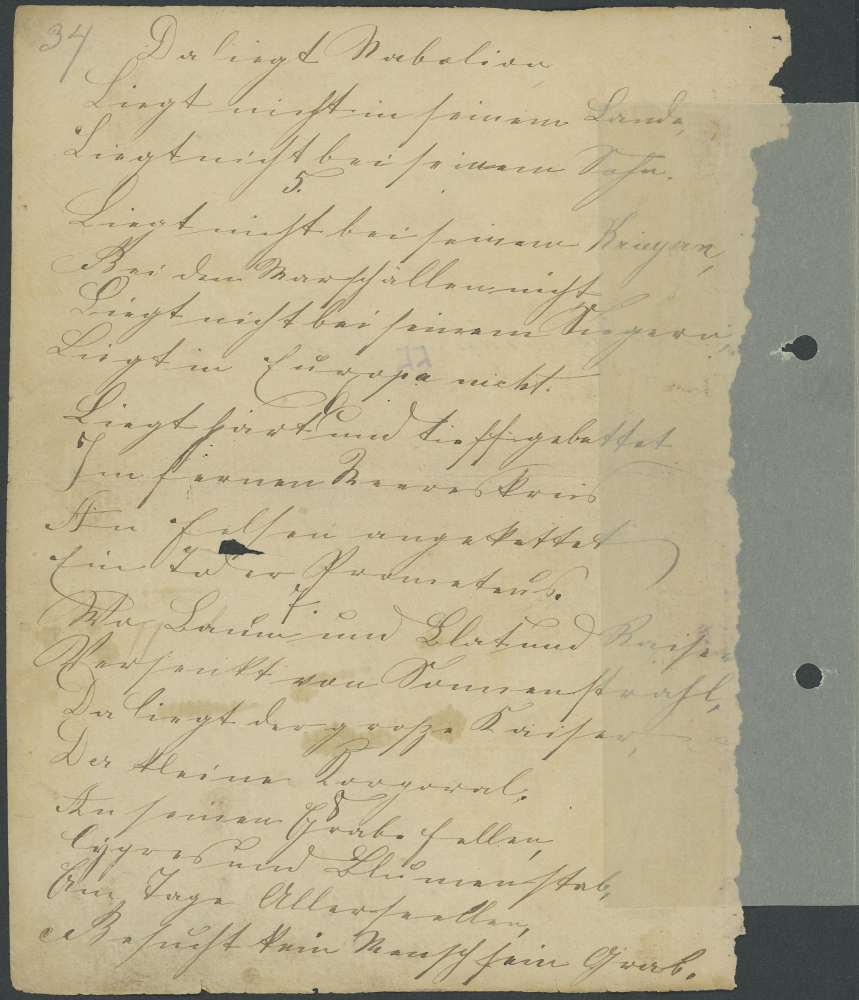 34
Da liegt Nabolion
Liegt nicht in seinem Lande,
Liegt nicht bei seinem Sohn.
5.
Liegt nicht bei seinem Kriegern,
Bei den Marschällen nicht
Liegt nicht bei seinem Siegern,
Liegt in Europa nicht.
Liegt hart und tief gebettet
Im fernen Meereskreis
An Felsen angekettet
Ein Toder Prometeus.
7.
Wo Baum und Blat und Reiser
Versenkt von Sonnenstrahl,
Da liegt der große Kaiser,
Der kleine Korporal.
8
An seinen Grabe fellen,
Cypres und Blumenstab,
Am Tage Allerseellen,
Besucht kein Mensch sein Grab.